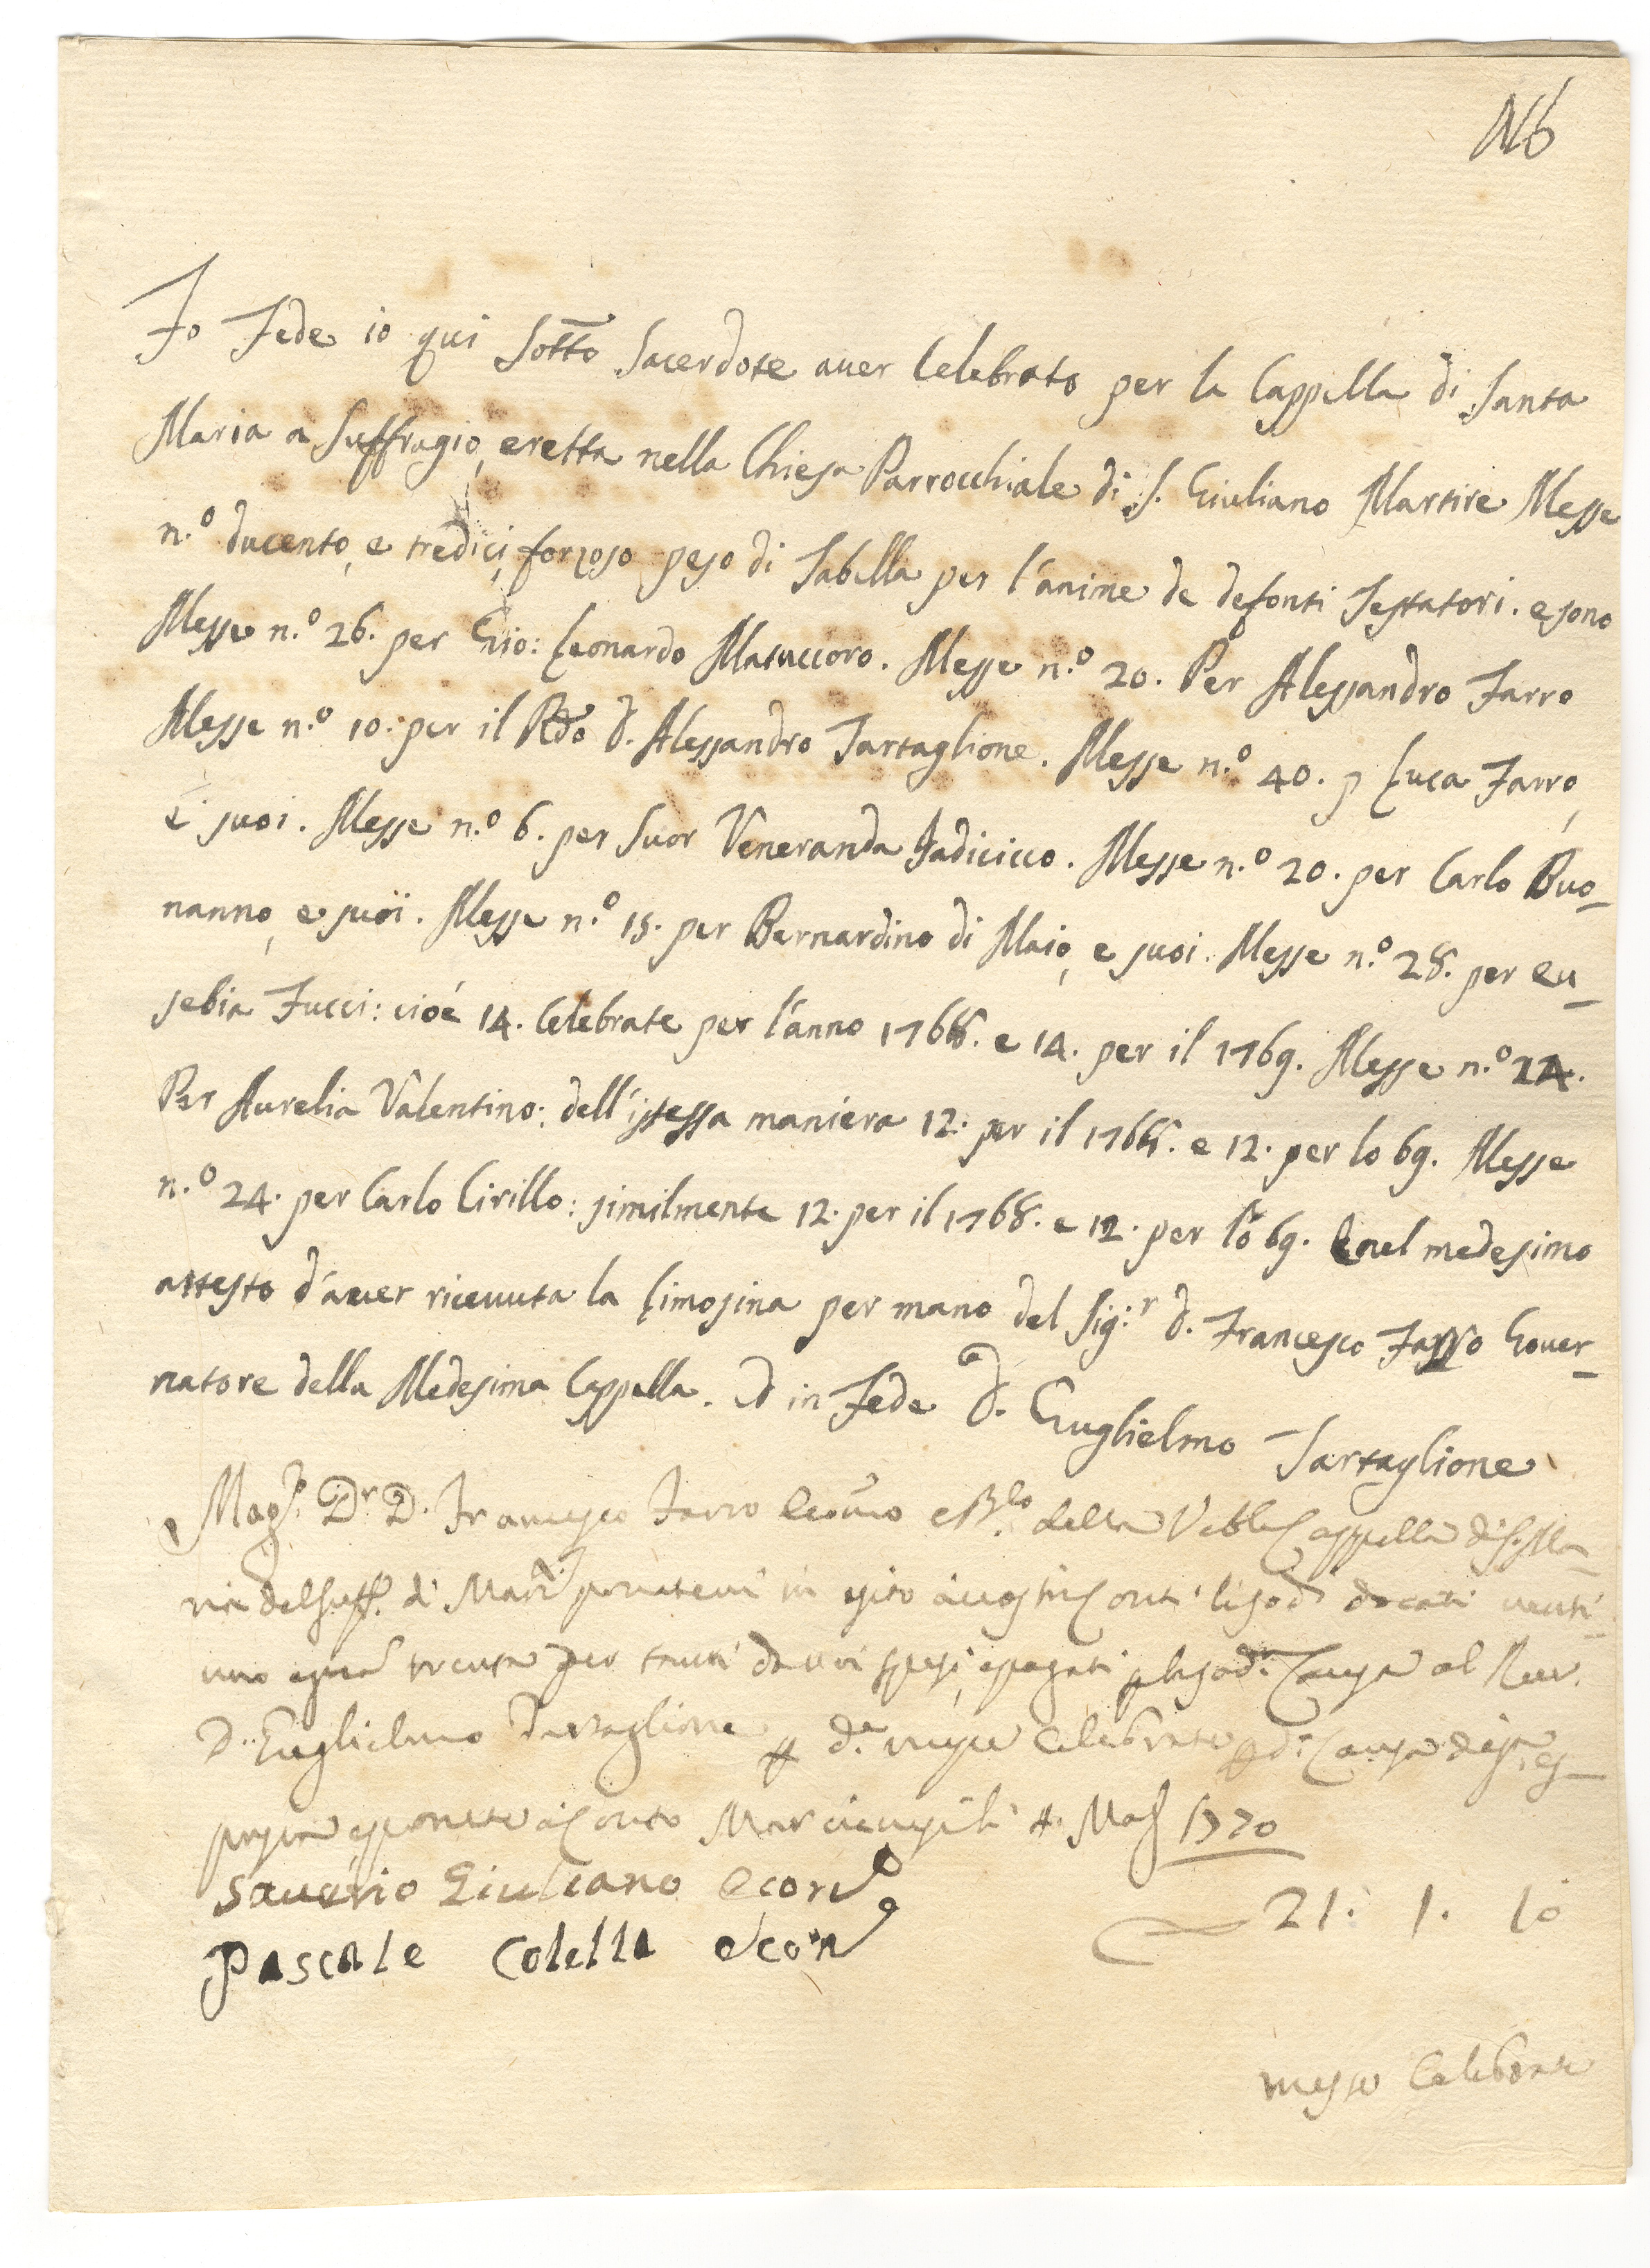 Fo Fede io qui Sotto Sacerdote auer Celebrato per la Cappella di Santa
Maria a Suffragio, eretta nella Chiesa Parrocchiale di S. Giuliano Martire Messe
n.º ducento, e tredici, forzoso peso di Tabella per l'anime de defonti Testatori. e sono
Messe n.º 26. per Gio: Leonardo Matuccoro. Messe n.º 20. Per Alessandro Farro
Messe n.º 10. per il Rdo D. Alessandro Tartaglione. Messe n.º 40. p Luca Farro,
e suoi. Messe n.º 6. per Suor Veneranda Iadicicco. Messe n.º 20. per Carlo Buo-
nanno, e suoi. Messe n.º 15. per Bernardino di Maio, e suoi. Messe n.º 28. per Eu-
sebia Fucci: cioé 14. Celebrate per l'anno 1768. e 14. per il 1769. Messe n.º 24.
Per Aurelia Valentino: dell'istessa maniera 12. per il 1768. e 12. per lo 69. Messe
n.º 24. per Carlo Cirillo: similmente 12. per il 1768. e 12. per lo 69. E nel medesimo
attesto d'auer riceuuta la limosina per mano del Sig:r D. Francesco Farro Gouer-
natore della Medesima Cappella. Ed in Fede D. Guglielmo Tartaglione
Mag.º Dr D. Francesco Farro Econo della Veble Cappella di S. Ma-
ria del Suff. di ponateui in esito a uostri Conti docati uenti
uno trenta per tanti da uoi spesi, e pagati al Reu.
D. Guglielmo Tartaglione messe Celebrate Causa
Conto 1770
Sauerio Giuliano Econº
Pascale Colella econº
21. 1. 10
messe Celebrate